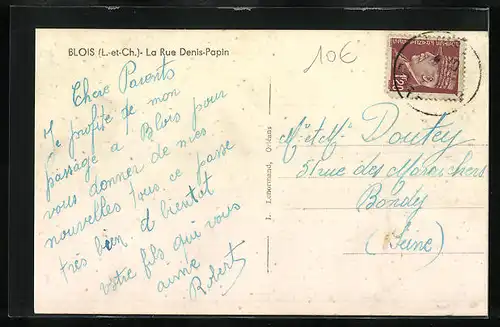 BLOIS (L.-et-Ch.)- La Rue Denis-Papin
10€
1F20
Chers Parents
Je profite de mon
passage à Blois pour
vous donner de mes
nouvelles tous ce passe
très bien et bientot
votre fils qui vous
aime
Robert
L. Lenormand, Orléans
Mr et Mme Doutey
51 rue des Maraichers
Bondy
(Seine)